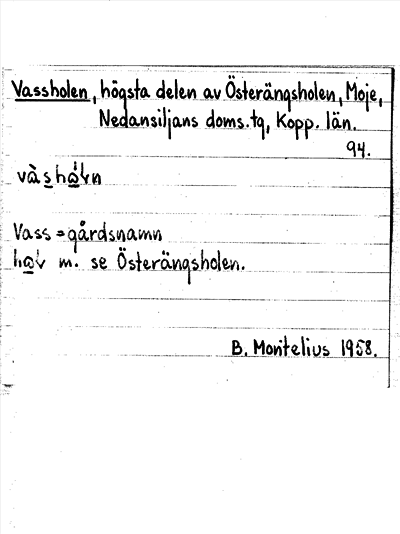 Vassholen, högsta delen av Österängsholen, Moje,
Nedansiljans doms.tg, Kopp. län.
94.
Vass = gårdsnamn
m. se Österängsholen.
B. Montelius 1958.